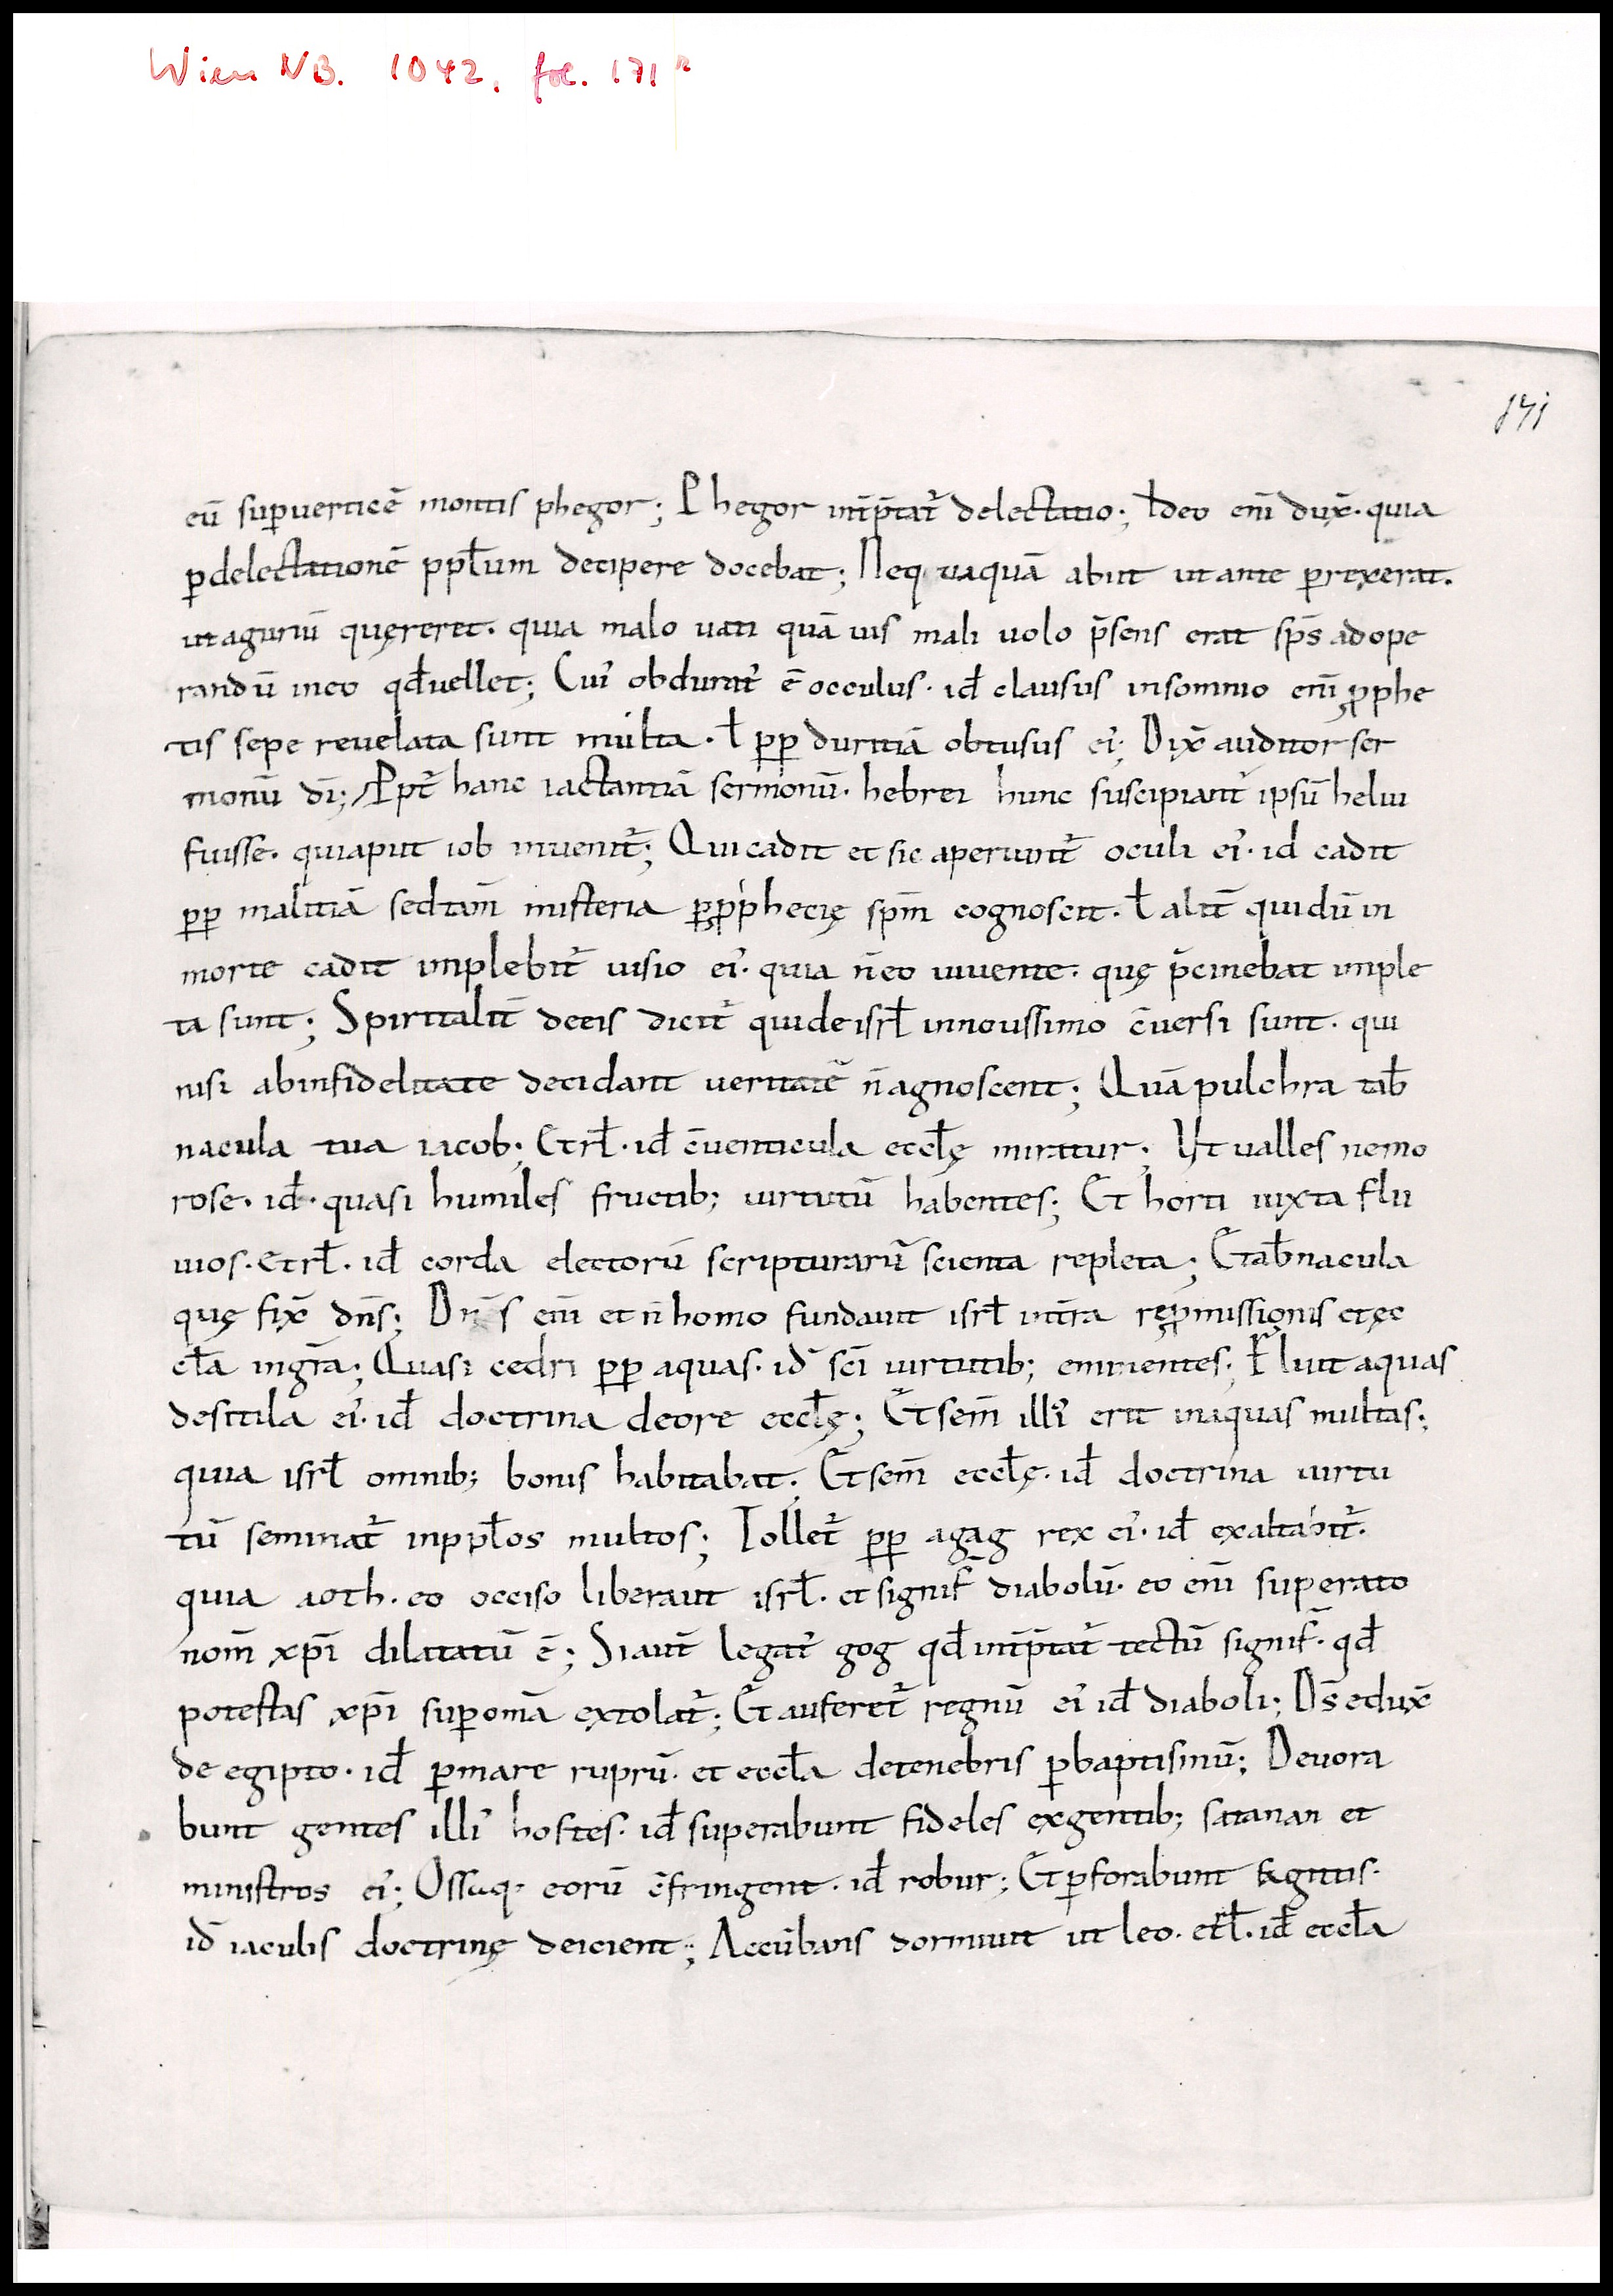 Wien NB. 1042, fol. 171r
171
eū sup̱uerticē montis phegor; Phegor int̄p̄tat᷑ delectatio; Ideo eni᷑ dux̄· quia
p̱delectationē ppl̄um decipere docebat; Neq uaquā abiit ut ante p̱rexerat.
ut aguriū quęreret· quia malo uati quā uis mali uolo p̄sens erat sp̄s adope
randū ineo qđuellet; Cui᷑ obdurat᷑ ē occulus· iđ clausus insomnio eni᷑ ꝓphe
tis sepe reuelata sunt multa· ł pp̱ duritiā obtusus ei᷑; Dix̄ auditor ser
monū dī; Ppt᷑ hanc iactantiā sermonū· hebrei hunc suscipiant᷑ ipsū heliu
fuisse· quiaput iob inuenit᷑; Qui cadit et sic aperiunt᷑ oculi ei᷑· id cadit
pp̱ malitiā sed tam̄ misteria p̱ꝓphecię sp̄m cognoscit· ł alit̄ qui dū in
morte cadit implebit᷑ uisio ei᷑· quia n̄eo uiuente· quę p̄cinebat imple
ta sunt; Spiritalit̄ deeis dicit᷑ quideisrł innouissimo c̄uersi sunt· qui
nisi abinfidelitate decidant ueritatē n̄agnoscent; Quā pulchra tab̄
nacula tua iacob; Etrł· iđ c̄uenticula ecclę miratur; Ut ualles nemo
rose· iđ· quasi humiles fructib; uirtutū habentes; Et horti iuxta flu
uios· Etrł· iđ corda electorū scripturarū scientia repleta; Etab̄nacula
quę fix̄ dn̄s; Dn̄s eni᷑ et n̄ homo fundauit isrł int̄ra reꝓmissionis et ęc
cła ingr̄a; Quasi cedri pp̱ aquas· id̄ sc̄i uirtutib; eminentes; Fluit aquas
desitila ei᷑· iđ doctrina deore ecclę; Et sem̄ illi᷑ erit inaquas multas;
quia isrł omnib; bonis habitabat· Et sem̄ ecclę· iđ doctrina uirtu
tū seminat᷑ inppłos multos; Tollet᷑ pp̱ agag rex ei᷑· iđ exaltabit᷑·
quia aoth· eo occiso liberauit isrł· et signif̄ diabolū· eo eni᷑ superato
nom̄ xp̄i dilatatū ē; Siaut̄ legat᷑ gog qđ int̄p̄tat᷑ tectū signif̄· qđ
potestas xp̄i sup̱omā extolat᷑; Et auferet᷑ regnū ei᷑ iđ diaboli; Ds̄ edux̄
de egipto· iđ p̱mare ruprū· et eccła detenebris p̱baptismū; Deuora
bunt gentes illi᷑ hostes· iđ superabunt fideles exgentib; satanan et
ministros ei᷑; Ossaq· eorū c̄fringent· iđ robur; Et p̱forabunt sagittis·
id̄ iaculis doctrinę deicient; Accubans dormiuit ut leo· etrł· iđ eccła